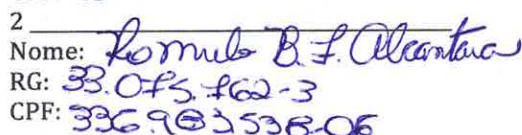 2
Nome: Romulo B. F. Alcantara
RG: 33.075.762-3
CPF: 336.983538-06